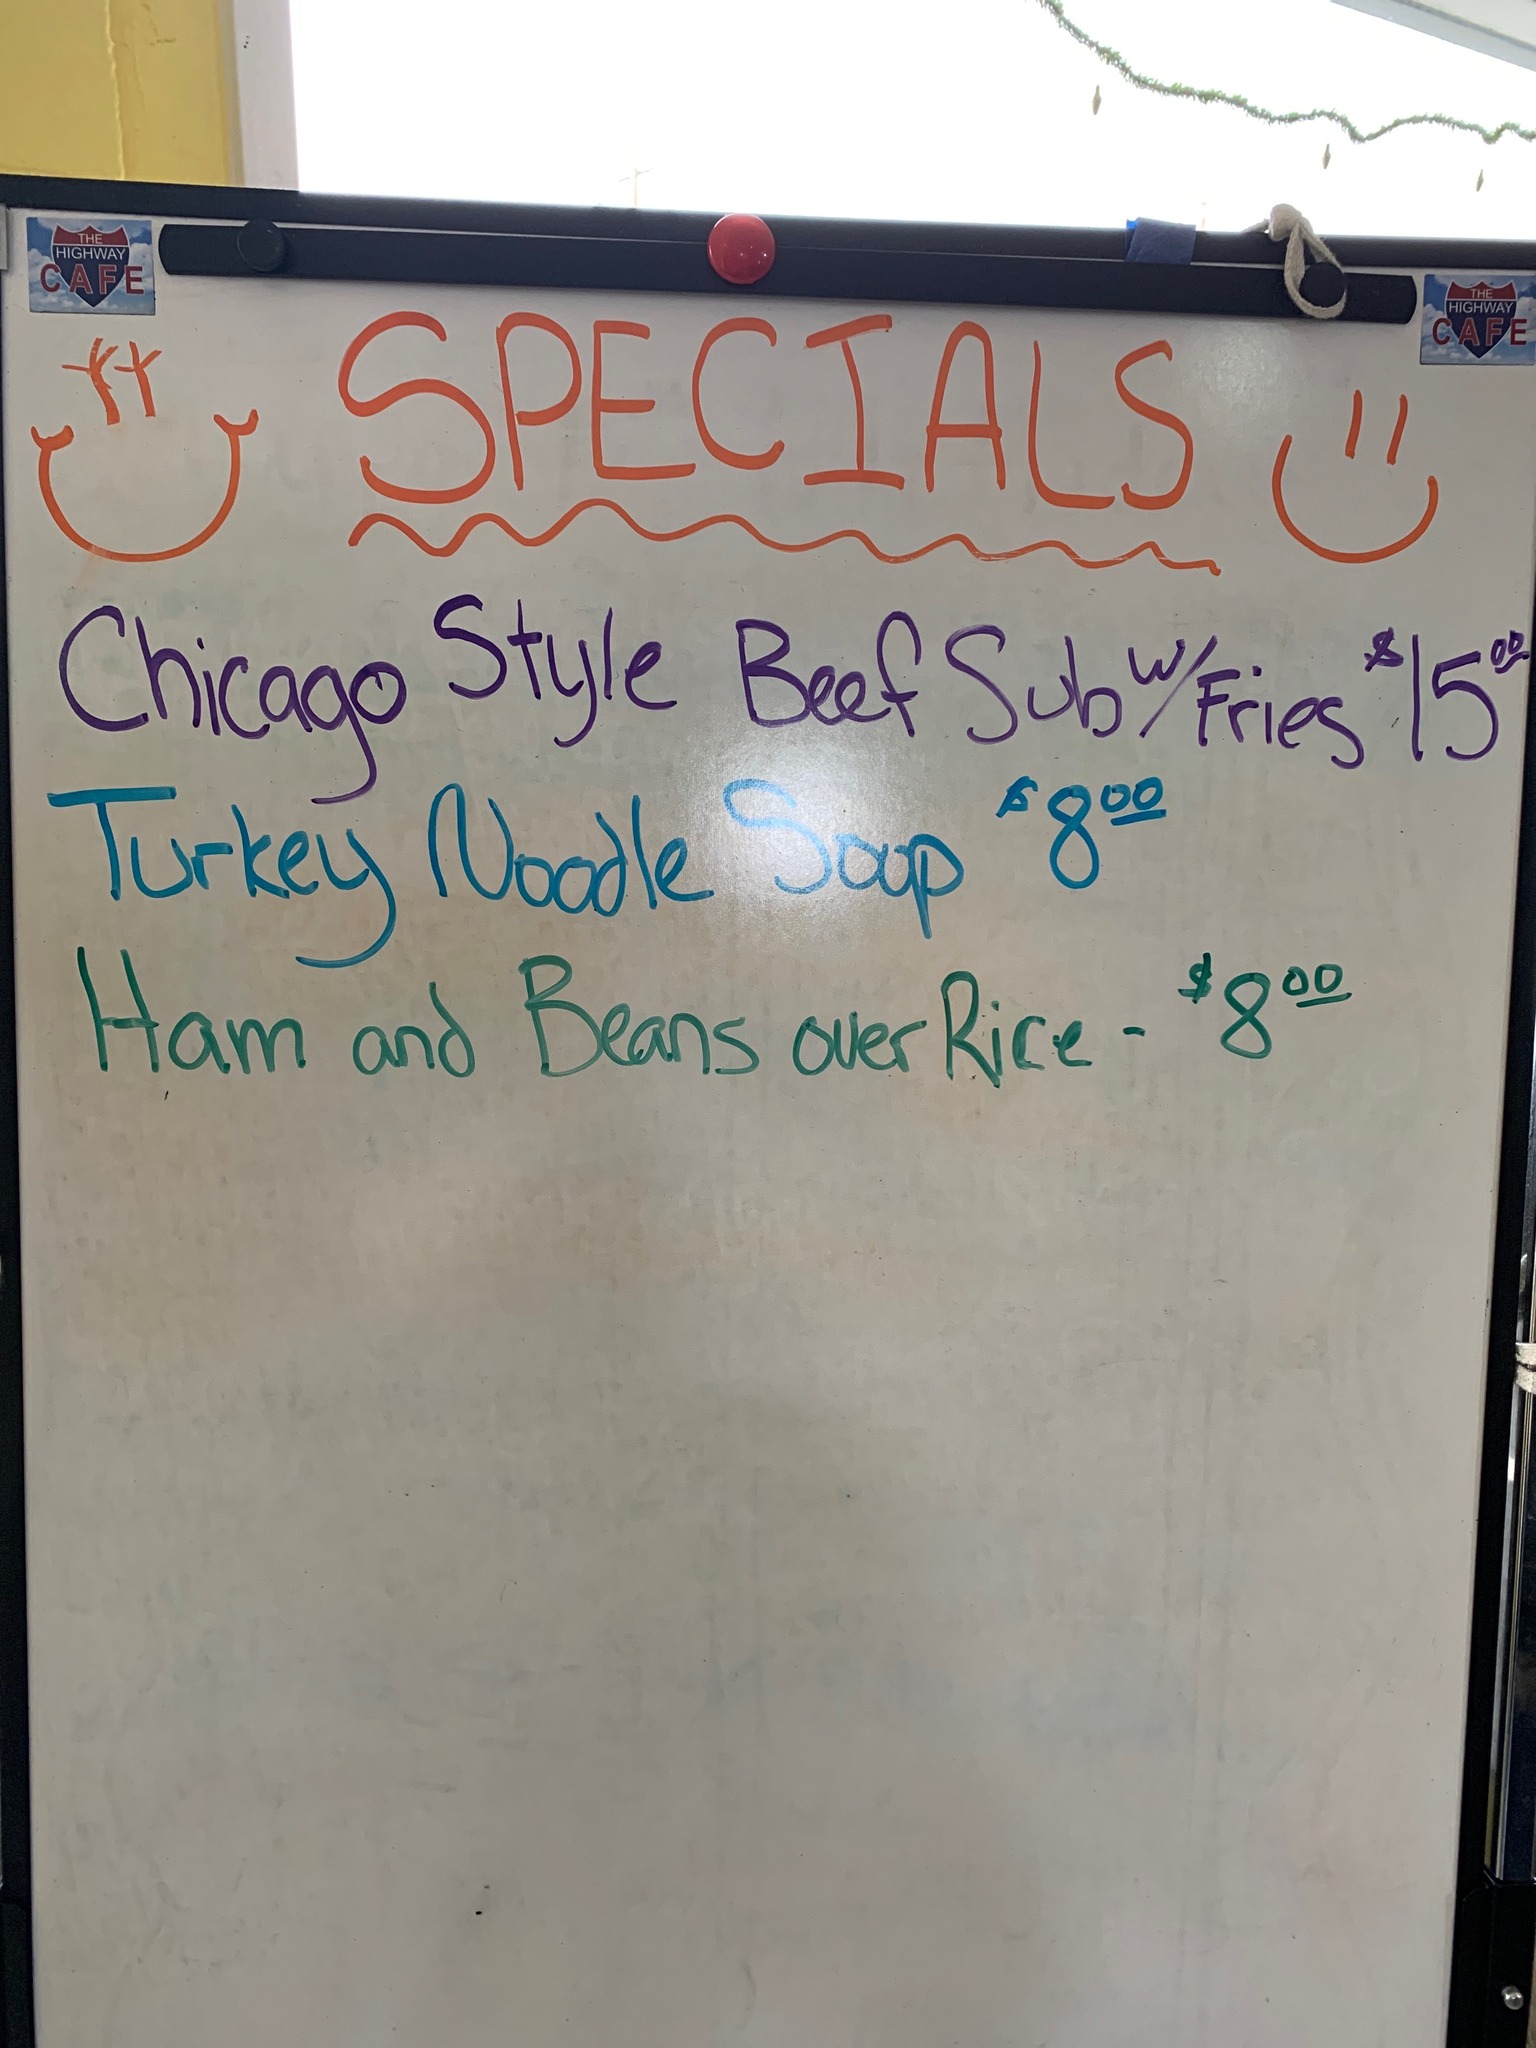 THE
HIGHWAY
CAFE
THE
HIGHWAY
CAFE
SPECIALS
Chicago Style Beef Sub w/Fries $15.00
Turkey Noodle Soup $8.00
Ham and Beans over Rice - $8.00